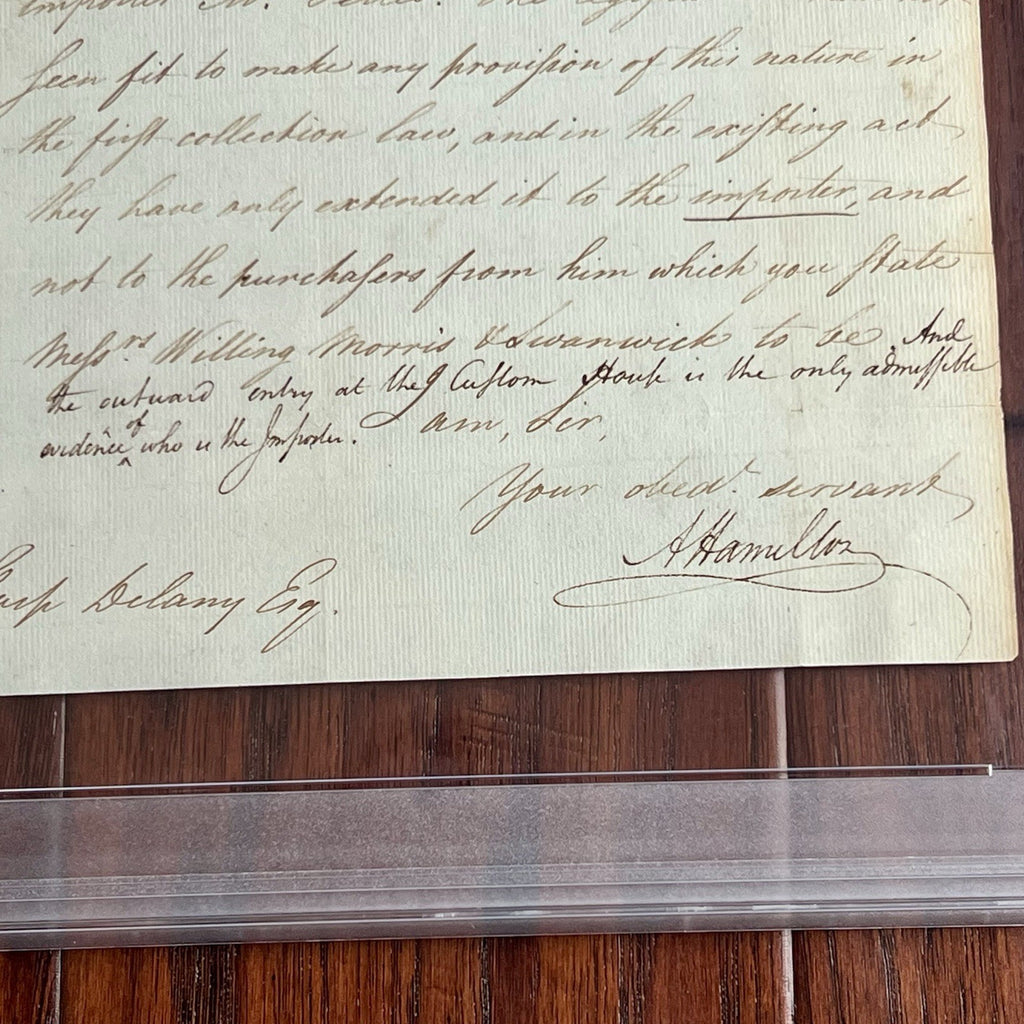 importer Mr.
seen fit to make any provision of this nature in
the first collection law, and in the existing act
they have only extended it to the importer, and
not to the purchasers from him which you state
Messrs Willing Morris & Swanwick to be. And
the outward entry at the Custom House is the only admissible
evidence of who is the Importer. I am, Sir,
Your obedt. servant
A Hamilton
Delany Esq.